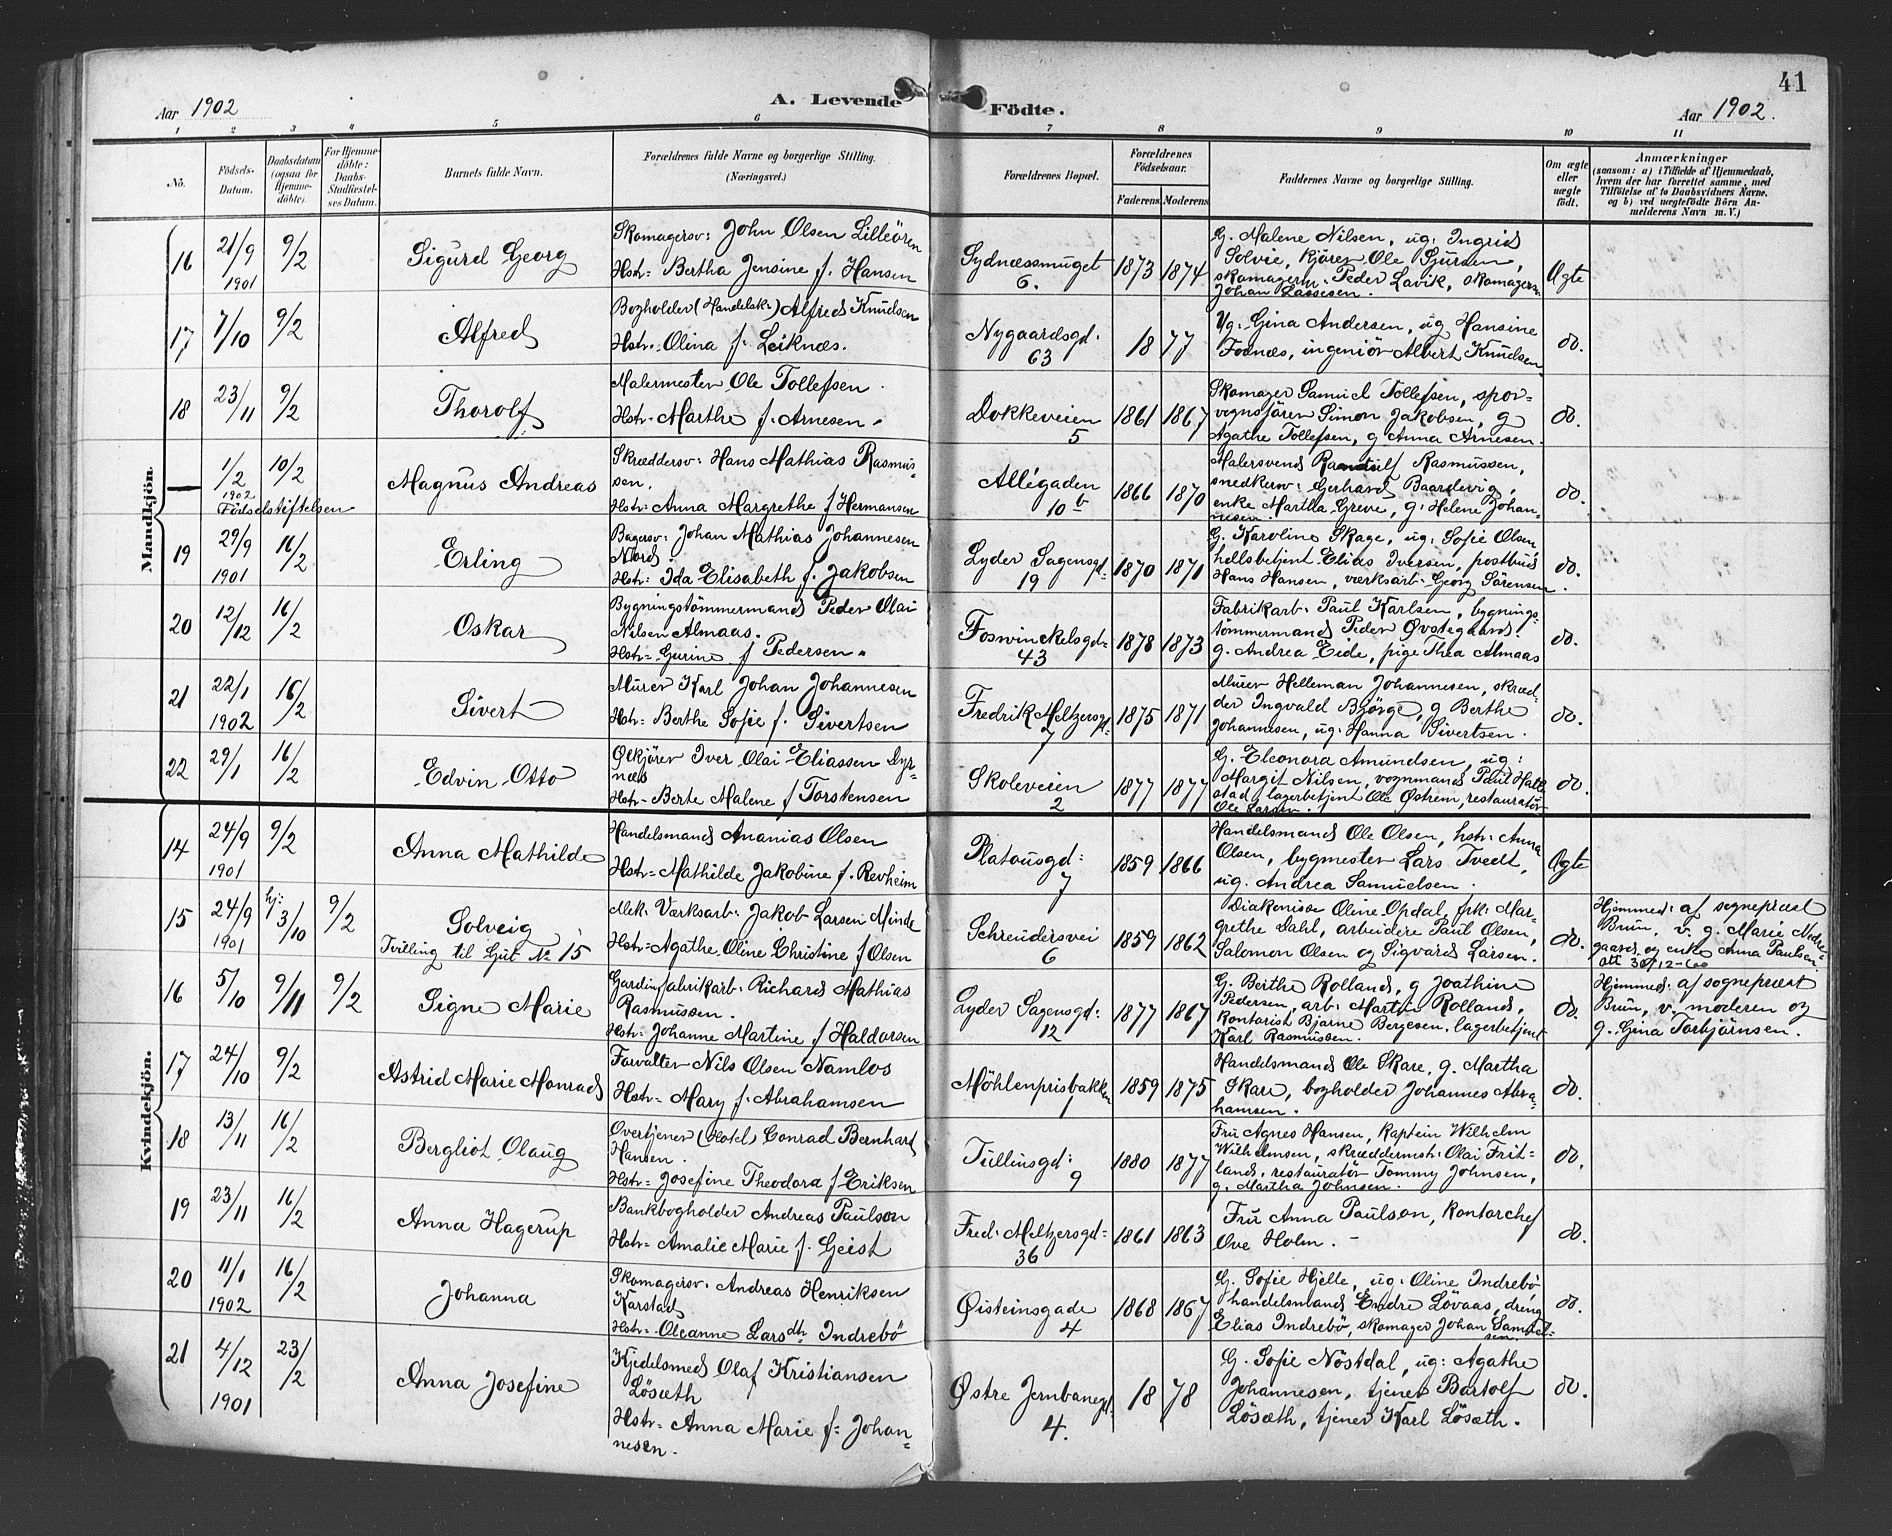 41
Aar 1902
A. Levende Födte.
Aar 1902.
1 2 3 4 5 6 7 8 9 10 11
No.
Födsels-Datum.
Daabsdatum (ogsaa för Hjemme-döbte).
For Hjemme-döbte: Daabs-Stadfæstel-ses Datum.
Barnets fulde Navn.
Forældrenes fulde Navne og borgerlige Stilling. (Næringsvei.)
Forældrenes Bopæl.
Forældrenes Födselsaar.
Faderens Moderens
Faddernes Navne og borgerlige Stilling.
Om ægte eller uægte födt.
Anmærkninger
(saasom: a) i Tilfælde af Hjemmedaab, hvem der har forrettet samme, med Tilföielse af to Daabsvidners Navne, og b) ved uægtefödte Börn An-melderens Navn m. V.)
Mandkjön.
16 21/9 1901 9/2 Sigurd Georg
Skomagersv: John Olsen Lilleören
Hstr= Bertha Jensine f. Hansen
Sydnæssmuget 6. 1873 1874
G. Malene Nilsen, ug: Ingrid
Solvie, kjörer Ole Sjursen,
skomagerm. Peder Lavik, skomagerm.
Johan Lassesen.
Ægte
17 7/10 9/2 Alfred
Bogholder (Handelsk:) Alfred Knudsen
Hstr.. Olina f. Leiknæs.
Nygaardsgd: 63 1877
Ug: Gina Andersen, ug Hansine
Fosnæs, ingeniör Albert Knudsen
do.
18 23/11 9/2 Thorolf
Malermester Ole Tollefsen
Hstr. Marthe f. Arnesen.
Dokkeveien 5 1861 1867
Skomager Samuel Tollefsen, spor-
vognsförer Simon Jakobsen, g
Agathe Tollefsen, g Anna Arnesen.
do.
— 1/2 1902 10/2 Magnus Andreas
Födselstiftelsen
Skræddersv: Hans Mathias Rasmus
sen.
Hstr: Anna Margrethe f Hermansen
Allégaden 10 b 1866 1870
Malersvend Randulf Rasmussen,
snedkersv: Gerhard Baardevig,
enke Martha Greve, g: Helene Johan-
nesen.
do.
19 29/9 1901 16/2 Erling
Bagersv: Johan Mathias Johannesen
Nord
Hstr: Ida Elisabeth f. Jakobsen
Lyder Sagensgd: 19 1870 1871
G. Karoline Skage, ug: Sofie Olsen
hellsbetjent Elias Iversen, postbud
Hans Hansen, værksarb. Georg Sörensen.
do.
20 12/12 16/2 Oskar
Bygningstömmermand Peder Olai
Nilsen Almaas.
Hstr= Gurine f Pedersen.
Foswinckelsgd= 43 1878 1873
Fabrikarb. Paul Karlsen, bygnings-
tömmermand Peder Øvstegaard.
g. Andrea Eide, pige Thea Almaas
do.
21 22/1 1902 16/2 Sivert
Murer Karl Johan Johannesen
Hstr= Berthe Sofie f. Sivertsen
Fredrik Meltzersgd. 7 1875 1871
Murer Helleman Johannesen, skræd-
der Ingvald Bjørge, g Berthe
Johannesen, ug: Hanna Sivertsen.
do.
22 29/1 16/2 Edvin Otto
Ølkjörer Iver Olai Eliassen Dyr-
næs
Hstr. Berte Malene f Torstensen
Skoleveien 2 1877 1877
G. Eleonora Amundsen, ug:
Margit Nilsen, vognmand Paul Halle
stad, lagerbetjent Ole Østrem, restauratör
Ole Larsen.
do.
Kvindekjön.
14 24/9 1901 9/2 Anna Mathilde
Handelsmand Ananias Olsen
Hstr= Mathilde Jakobine f. Revheim
Platousgd: 7 1859 1866
Handelsmand Ole Olsen, hstr: Anna
Olsen, bygmester Lars Tvedt,
ug. Andrea Samuelsen.
Ægte
15 24/9 1901 hj: 3/10 9/2 Solveig
Tvilling til Gut No 15
Mek: Værksarb: Jakob Larsen Minde
Hstr= Agathe Oline Christine f Olsen
Schreudersvei 6 1859 1862
Diakonisse Oline Opdal, frk: Mar-
grethe Dahl, arbeidere Paul Olsen,
Salomon Olsen og Sigvard Larsen.
do.
Hjemmed: af sogneprest
Brun, v. g. Marie Nedre-
gaard og enke Anna Paulsen
att 30/12-60
16 5/10 9/11 9/2 Signe Marie
Gardinfabrikarb. Richard Mathias
Rasmussen.
Hstr: Johanne Martine f Haldorsen
Lyder Sagensgd: 12 1877 1867
G. Berthe Rolland, g Joathine
Pedersen, arb: Martin Rolland,
Kontorist Bjarne Bergesen, lagerbetjent
Karl Rasmussen.
do.
Hjemmed: af sogneprest
Brun, v. moderen og
g. Gina Torbjörnsen.
17 24/10 9/2 Astrid Marie Monrad
Forvalter Nils Olsen Namlos
Hstr= Mary f. Abrahamsen
Möhlenprisbakken 1 1859 1875
Handelsmand Ole Skare, g. Martha
Skare, bogholder Johannes Abra-
hamsen.
do.
18 13/11 16/2 Bergliot Olaug
Overtjener (Hotel) Conrad Bernhard
Hansen.
Hstr= Josefine Theodora f Eriksen
Tullinsgd: 9 1880 1877
Fru Agnes Hansen, Kaptein Wilhelm
Wilhelmsen, skræddermst: Olai Frit-
land, restauratör Tommy Johnsen,
g. Martha Johnsen.
do.
19 23/11 16/2 Anna Hagerup
Bankbogholder Andreas Paulson
Hstr= Amalie Marie f. Geist
Fred: Meltzersgd= 36 1861 1863
Fru Anna Paulson, Kontorchef
Ove Holm.
do.
20 11/1 1902 16/2 Johanna
Skomagersv: Andreas Henriksen
Karstad
Hstr. Oleanne Larsdtr Indrebö
Øisteinsgade 4 1868 1867
G. Sofie Hjelle, ug: Oline Indrebö
handelsmand Endre Lövaas, dreng
Elias Indrebö, skomager Johan Samuel-
sen
do.
21 4/12 1901 23/2 Anna Josefine
Kjedelsmed Olaf Kristiansen
Lösæth
Hstr= Anna Marie f: Johan-
nesen.
Østre Jernbanegd. 4. 1878
G. Sofie Nöstdal, ug: Agathe
Johannesen, tjener Bartolf
Lösæth, tjener Karl Lösæth.
do.